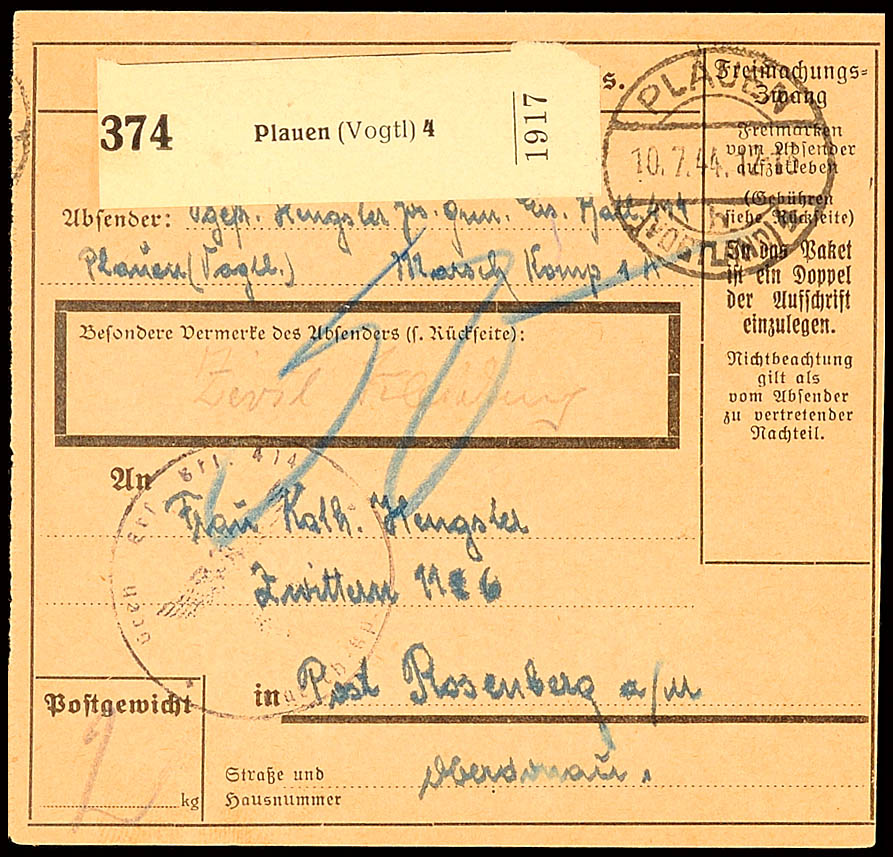 374
Plauen (Vogtl) 4
1917
s.
PLAUEN
10.7.44.
b
Freimachungs=
Zwang
Freimarken
vom Absender
aufzukleben
(Gebühren
siehe Rückseite)
In das Paket
ist ein Doppel
der Aufschrift
einzulegen.
Nichtbeachtung
gilt als
vom Absender
zu vertretender
Nachteil.
Absender: Hengsler Jos. Ers. Batl.
Plauen (Vogtl.) Marsch Komp
Besondere Vermerke des Absenders (s. Rückseite):
Zivil Kleidung
An
Frau Kath. Hengsler
Zwittern 6
in Post Rosenberg a/M
Oberdonau.
Postgewicht
2
kg
Straße und
Hausnummer